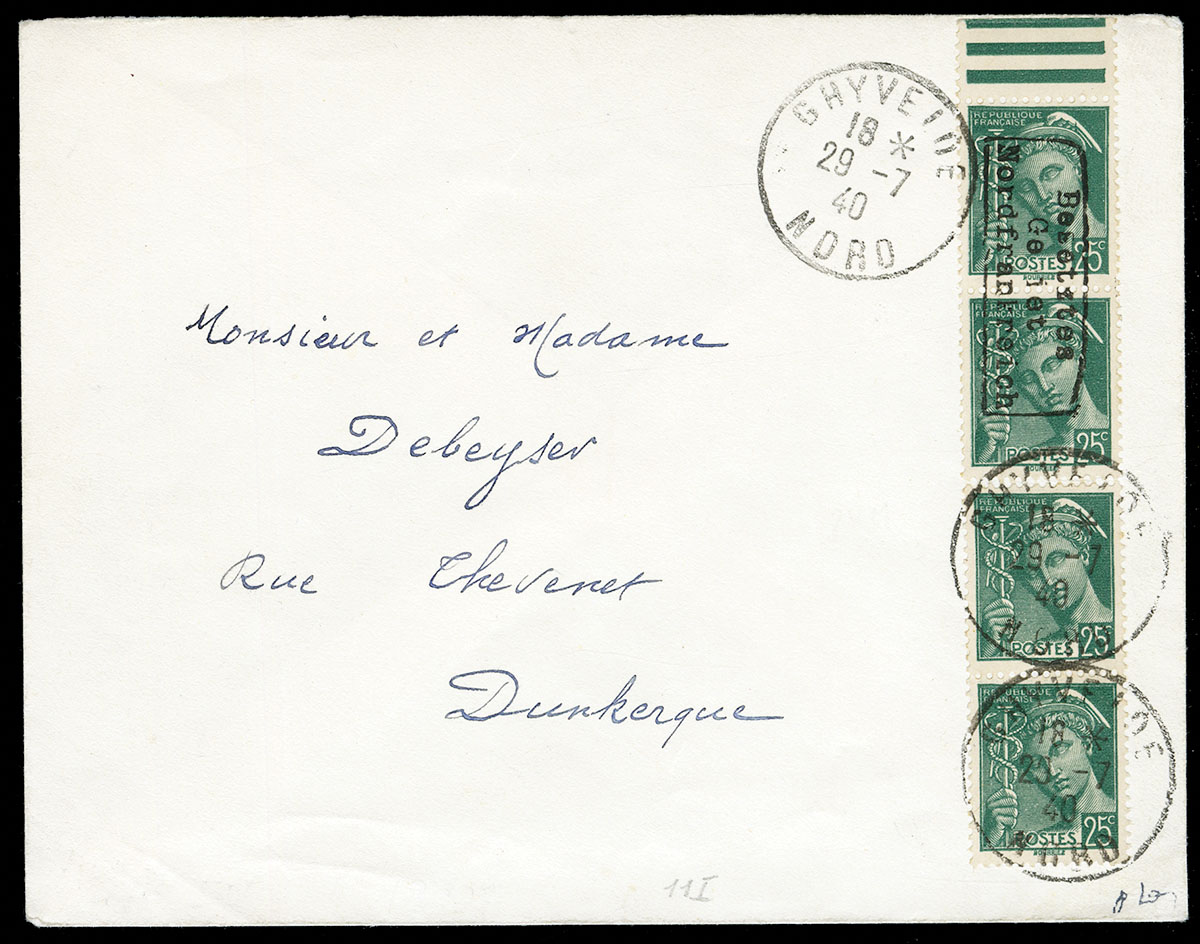 GHYVELDE
18 *
29 -7
40
NORD
RÉPUBLIQUE
FRANÇAISE
POSTES 25c
Besetztes
Gebiet
Nordfrankreich
RÉPUBLIQUE
FRANÇAISE
POSTES 25c
Monsieur et Madame
Debeyser
Rue Thevenet
Dunkerque
GHYVELDE
18 *
29 -7
40
NORD
RÉPUBLIQUE
FRANÇAISE
POSTES 25c
GHYVELDE
18 *
29 -7
40
NORD
RÉPUBLIQUE
FRANÇAISE
POSTES 25c
11I